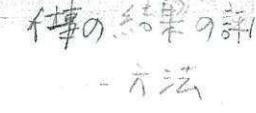 仕事の結果の評
- 方法